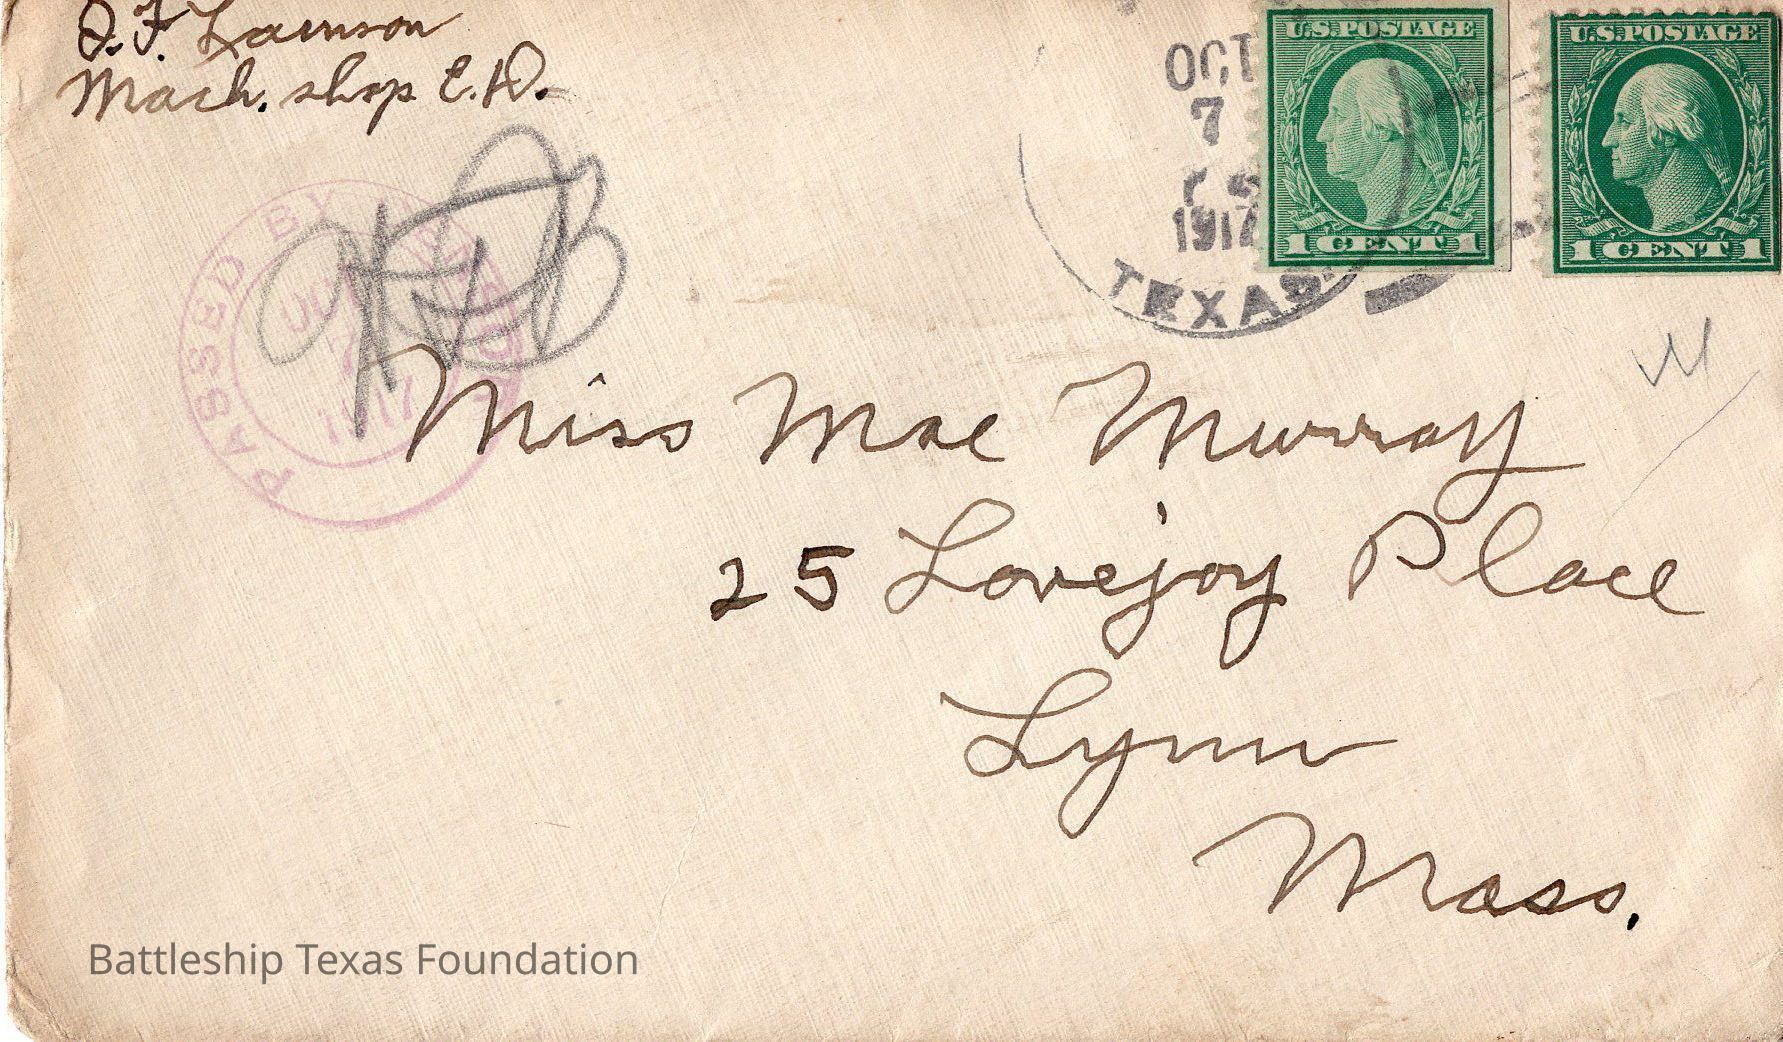 O.F. Lamson
Mach. shop E.D.
OCT
7
1917
TEXAS.
U.S. POSTAGE
1 CENT 1
U.S. POSTAGE
1 CENT 1
PASSED BY
OCT
7
1917
Miss Mae Murray
25 Lovejoy Place
Lynn
Mass.
Battleship Texas Foundation